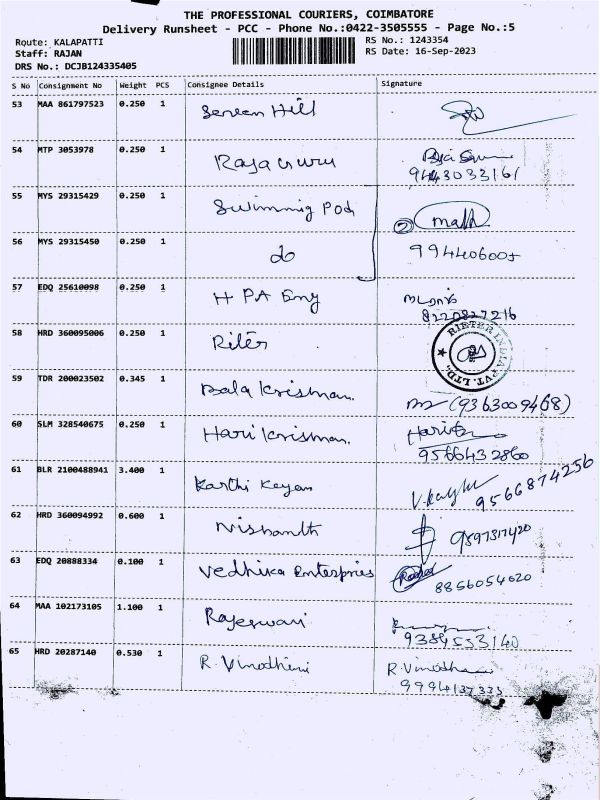 THE PROFESSIONAL COURIERS, COIMBATORE
Delivery Runsheet - PCC - Phone No.:0422-3505555 - Page No.:5
Route: KALAPATTI RS No.: 1243354
Staff: RAJAN RS Date: 16-Sep-2023
DRS No.: DCJB124335405
S No Consignment No Weight PCS Consignee Details Signature
53 MAA 861797523 0.250 1 Seven Hill
54 MTP 3053978 0.250 1 Rajaguru
9443033161
55 MYS 29315429 0.250 1 Swimming Pod
56 MYS 29315450 0.250 1 do 994406005
57 EDQ 25610098 0.250 1 H PA Eng
8220827216
58 HRD 360095006 0.250 1 Riter RIETER INDIA PVT. LTD.
59 TDR 200023502 0.345 1 Bala Krisman. (9363009468)
60 SLM 328540675 0.250 1 Hari Krisman.
9566432860
61 BLR 2100488941 3.400 1 Karthi Keyan 9566874256
62 HRD 360094992 0.600 1 Nishanth 9897317420
63 EDQ 20888334 0.100 1 Vedhika Enterpries 8856054620
64 MAA 102173105 1.100 1 Rajeswari
9384553140
65 HRD 20287140 0.530 1 R. Vinodhini R. Vinodha
9994137335